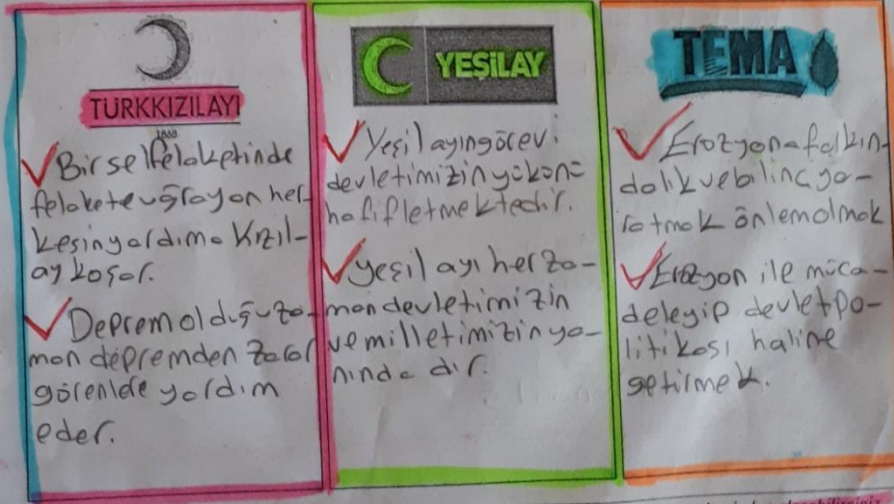 TÜRKKIZILAYI
1868
Bir selfelaketinde
felakete uğrayan her-
kesin yardıma Kızıl-
ay koşar.
Deprem olduğu za-
man depremden zarar
görenlere yardım
eder.
YEŞİLAY
Yeşil ayıngörevi
devletimizin yükünü
hafifletmektedir.
yeşil ayı her za-
man devletimizin
ve milletimizin ya-
nında dır.
TEMA
Erozyona farkın-
dalık ve bilinç ya-
ratmak önlem almak
Erozyon ile müca-
deleyip devlet po-
litikası haline
getirmek.